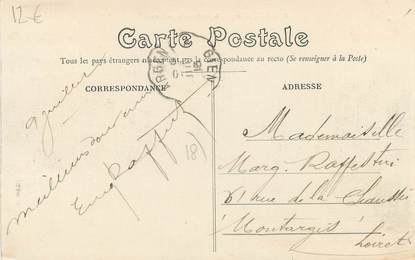 12 €
Carte Postale
Tous les pays étrangers n'acceptent pas la correspondance au recto (Se renseigner à la Poste)
CORRESPONDANCE
ADRESSE
GIEN
9 juillet
meilleurs souvenirs
Em Raffestin
18)
Mademoiselle
Marg. Raffestin
61 rue de la Chaussée
Montargis
Loiret